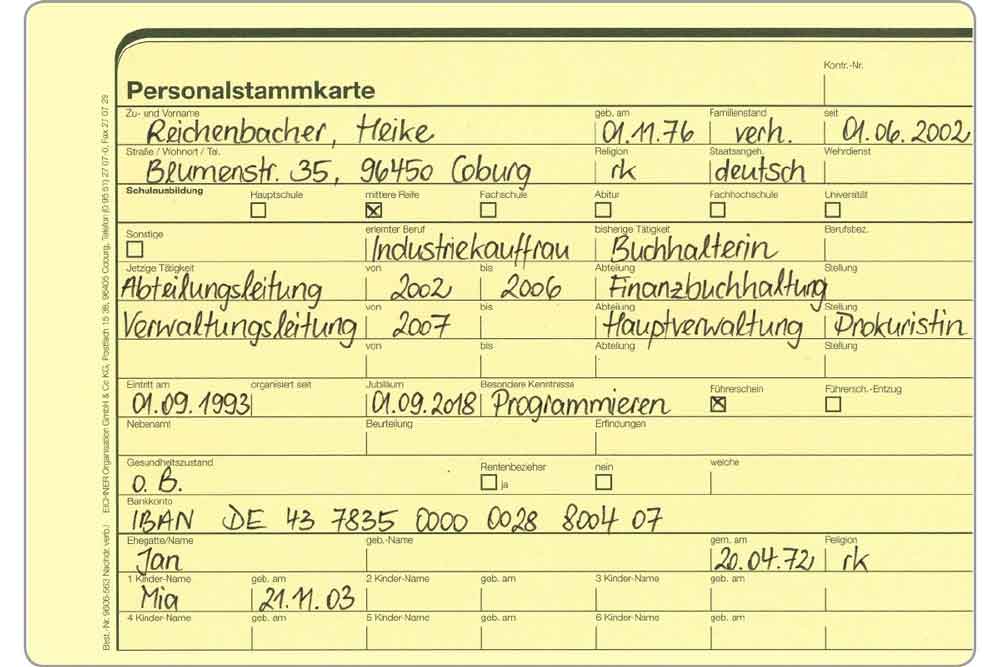 Kontr.-Nr.
Personalstammkarte
Zu- und Vorname geb. am Familienstand seit
Reichenbacher, Heike 01.11.76 verh. 01.06.2002
Straße / Wohnort / Tel. Religion Staatsangeh. Wehrdienst
Blumenstr. 35, 96450 Coburg rk deutsch
Schulausbildung Hauptschule mittlere Reife Fachschule Abitur Fachhochschule Universität
Sonstige erlernter Beruf bisherige Tätigkeit Berufsbez.
Industriekauffrau Buchhalterin
Jetzige Tätigkeit von bis Abteilung Stellung
Abteilungsleitung 2002 2006 Finanzbuchhaltung
von bis Abteilung Stellung
Verwaltungsleitung 2007 Hauptverwaltung Prokuristin
von bis Abteilung Stellung
Eintritt am organisiert seit Jubiläum Besondere Kenntnisse Führerschein Führersch.-Entzug
01.09.1993 01.09.2018 Programmieren
Nebenamt Beurteilung Erfindungen
Gesundheitszustand Rentenbezieher nein welche
o. B. ja
Bankkonto
IBAN DE 43 7835 0000 0028 8004 07
Ehegatte/Name geb.-Name gem. am Religion
Jan 20.04.72 rk
1 Kinder-Name geb. am 2 Kinder-Name geb. am 3 Kinder-Name geb. am
Mia 21.11.03
4 Kinder-Name geb. am 5 Kinder-Name geb. am 6 Kinder-Name geb. am
Best.-Nr. 9606-563 Nachdr. verb.! EICHNER Organisation GmbH & Co KG, Postfach 15 36, 96405 Coburg, Telefon (0 95 61) 27 07-0, Fax 27 07 29